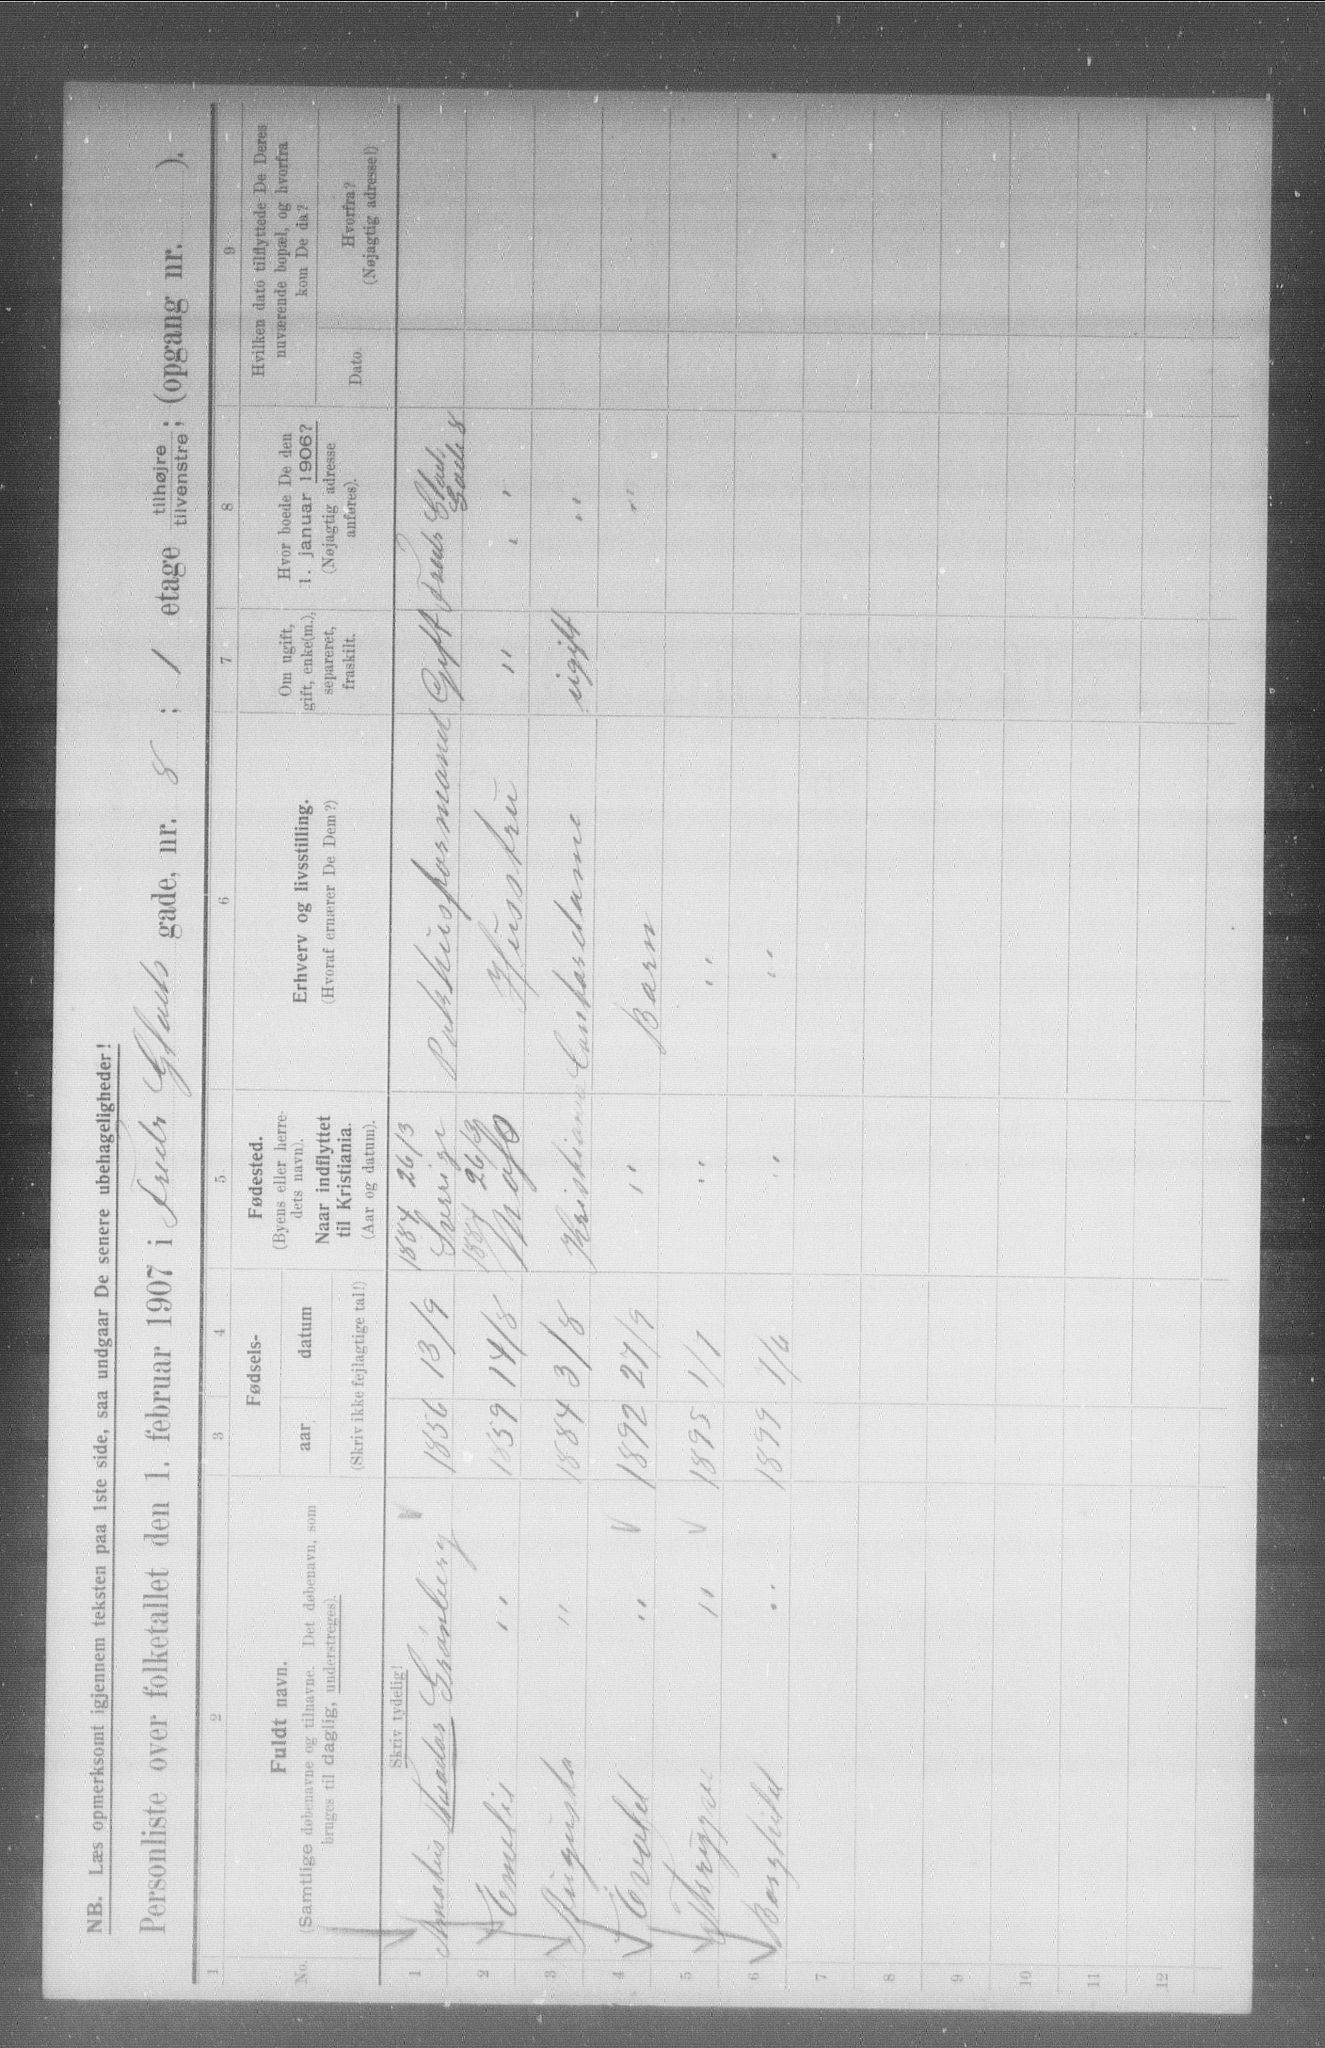 NB. Læs opmerksomt igjennem teksten paa 1ste side, saa undgaar De senere ubehageligheder!
Personliste over folketallet den 1. februar 1907 i Fredr Glads gade, nr. 8 ; 1 etage tilhøjre / tilvenstre ; (opgang nr. ).
1 2 3 4 5 6 7 8 9
No.
Fuldt navn.
(Samtlige døbenavne og tilnavne. Det døbenavn, som
bruges til daglig, understreges).
Fødsels-
aar datum
(Skriv ikke fejlagtige tal!)
Fødested.
(Byens eller herre-
dets navn).
Naar indflyttet
til Kristiania.
(Aar og datum).
Erhverv og livsstilling.
(Hvoraf ernærer De Dem?)
Om ugift,
gift, enke(m.),
separeret,
fraskilt.
Hvor boede De den
1. januar 1906?
(Nøjagtig adresse
anføres).
Hvilken dato tilflyttede De Deres
nuværende bopæl, og hvorfra
kom De da?
Dato.
Hvorfra?
(Nøjagtig adresse!)
Skriv tydelig!
1884 26/3
1 Teodor Grönberg 1856 13/9 Sverrige Pakhusformand Gift Fredr Glads Gade 8
1884 26/3
2 Emelie " 1859 14/8 Husstru " "
3 Augusta " 1884 3/8 Kristiania ugift "
4 Evald " 1892 27/9 " Barn "
5 " 1895 1/7 " "
6 Borghild " 1899 7/6 " "
7
8
9
10
11
12